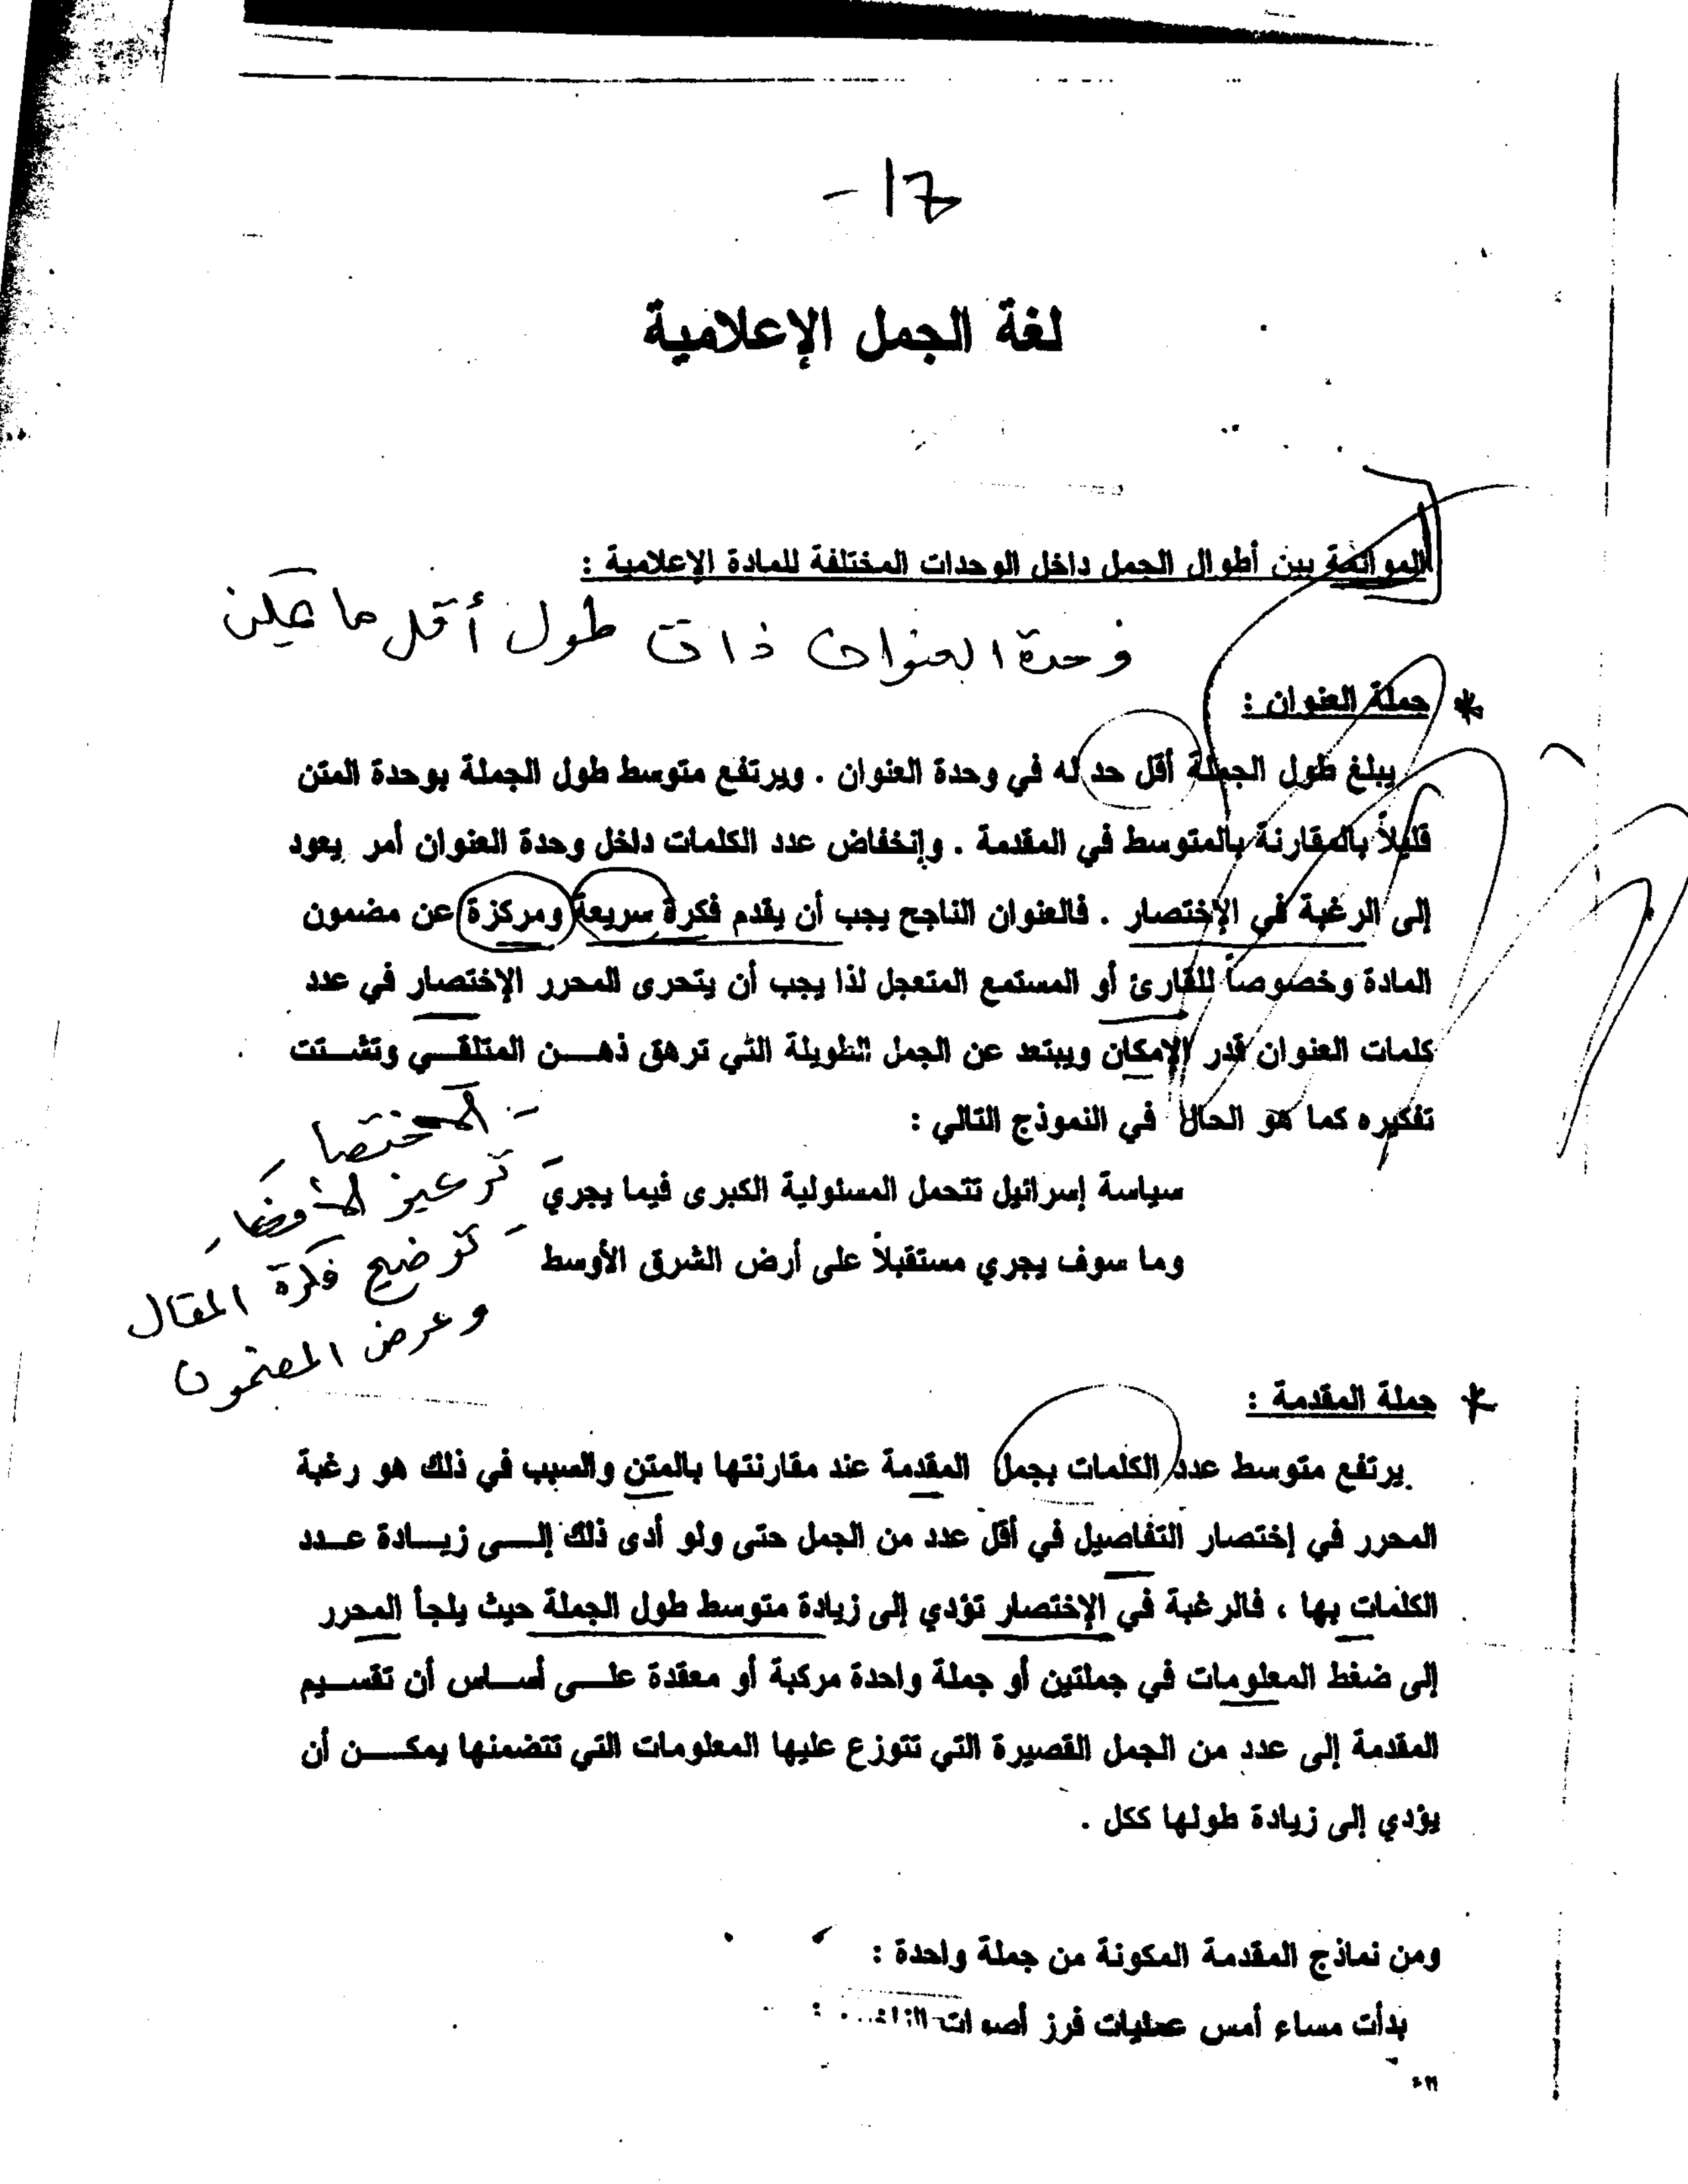 لغة الجمل الإعلامية
الموائمة بين أطوال الجمل داخل الوحدات المختلفة للمادة الإعلامية :
وحدة العنوان ذات طول أقل ما يمكن
* جملة العنوان :
يبلغ طول الجملة أقل حد له في وحدة العنوان . ويرتفع متوسط طول الجملة بوحدة المتن
قليلاً بالمقارنة بالمتوسط في المقدمة . وإنخفاض عدد الكلمات داخل وحدة العنوان أمر يعود
إلى الرغبة في الإختصار . فالعنوان الناجح يجب أن يقدم فكرة سريعة ومركزة عن مضمون
المادة وخصوصاً للقارئ أو المستمع المتعجل لذا يجب أن يتحرى المحرر الإختصار في عدد
كلمات العنوان قدر الإمكان ويبتعد عن الجمل الطويلة التي ترهق ذهــن المتلقــي وتشــتت
تفكيره كما هو الحال في النموذج التالي :
سياسة إسرائيل تتحمل المسئولية الكبرى فيما يجري
وما سوف يجري مستقبلاً على أرض الشرق الأوسط
- توضيح فكرة المقال
وعرض المضمون
* جملة المقدمة :
يرتفع متوسط عدد الكلمات بجمل المقدمة عند مقارنتها بالمتن والسبب في ذلك هو رغبة
المحرر في إختصار التفاصيل في أقل عدد من الجمل حتى ولو أدى ذلك إلــى زيــادة عــدد
الكلمات بها ، فالرغبة في الإختصار تؤدي إلى زيادة متوسط طول الجملة حيث يلجأ المحرر
إلى ضغط المعلومات في جملتين أو جملة واحدة مركبة أو معقدة علــى أســاس أن تقســيم
المقدمة إلى عدد من الجمل القصيرة التي تتوزع عليها المعلومات التي تتضمنها يمكــن أن
يؤدي إلى زيادة طولها ككل .
ومن نماذج المقدمة المكونة من جملة واحدة :
بدأت مساء أمس عمليات فرز أصوات